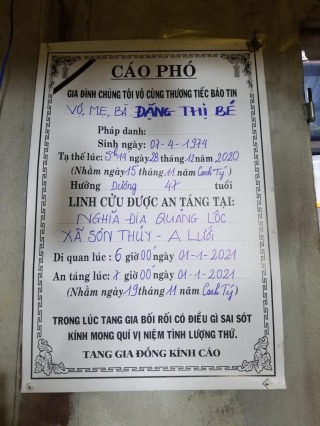 CÁO PHÓ
GIA ĐÌNH CHÚNG TÔI VÔ CÙNG THƯƠNG TIẾC BÁO TIN
VỢ, MẸ, BÀ ĐẶNG THỊ BÉ
Pháp danh:
Sinh ngày: 07-4-1974
Tạ thế lúc: 5h14 ngày 28 tháng 12 năm 2020
(Nhằm ngày 15 tháng 11 năm Canh Tý)
Hưởng Dương 47 tuổi
LINH CỬU ĐƯỢC AN TÁNG TẠI:
NGHĨA ĐỊA QUẢNG LỘC
XÃ SƠN THỦY - A LƯỚI
Di quan lúc: 6 giờ 00' ngày 01-1-2021
An táng lúc: 7 giờ 00' ngày 01-1-2021
(Nhằm ngày 19 tháng 11 năm Canh Tý)
TRONG LÚC TANG GIA BỐI RỐI CÓ ĐIỀU GÌ SAI SÓT
KÍNH MONG QUÍ VỊ NIỆM TÌNH LƯỢNG THỨ.
TANG GIA ĐỒNG KÍNH CÁO